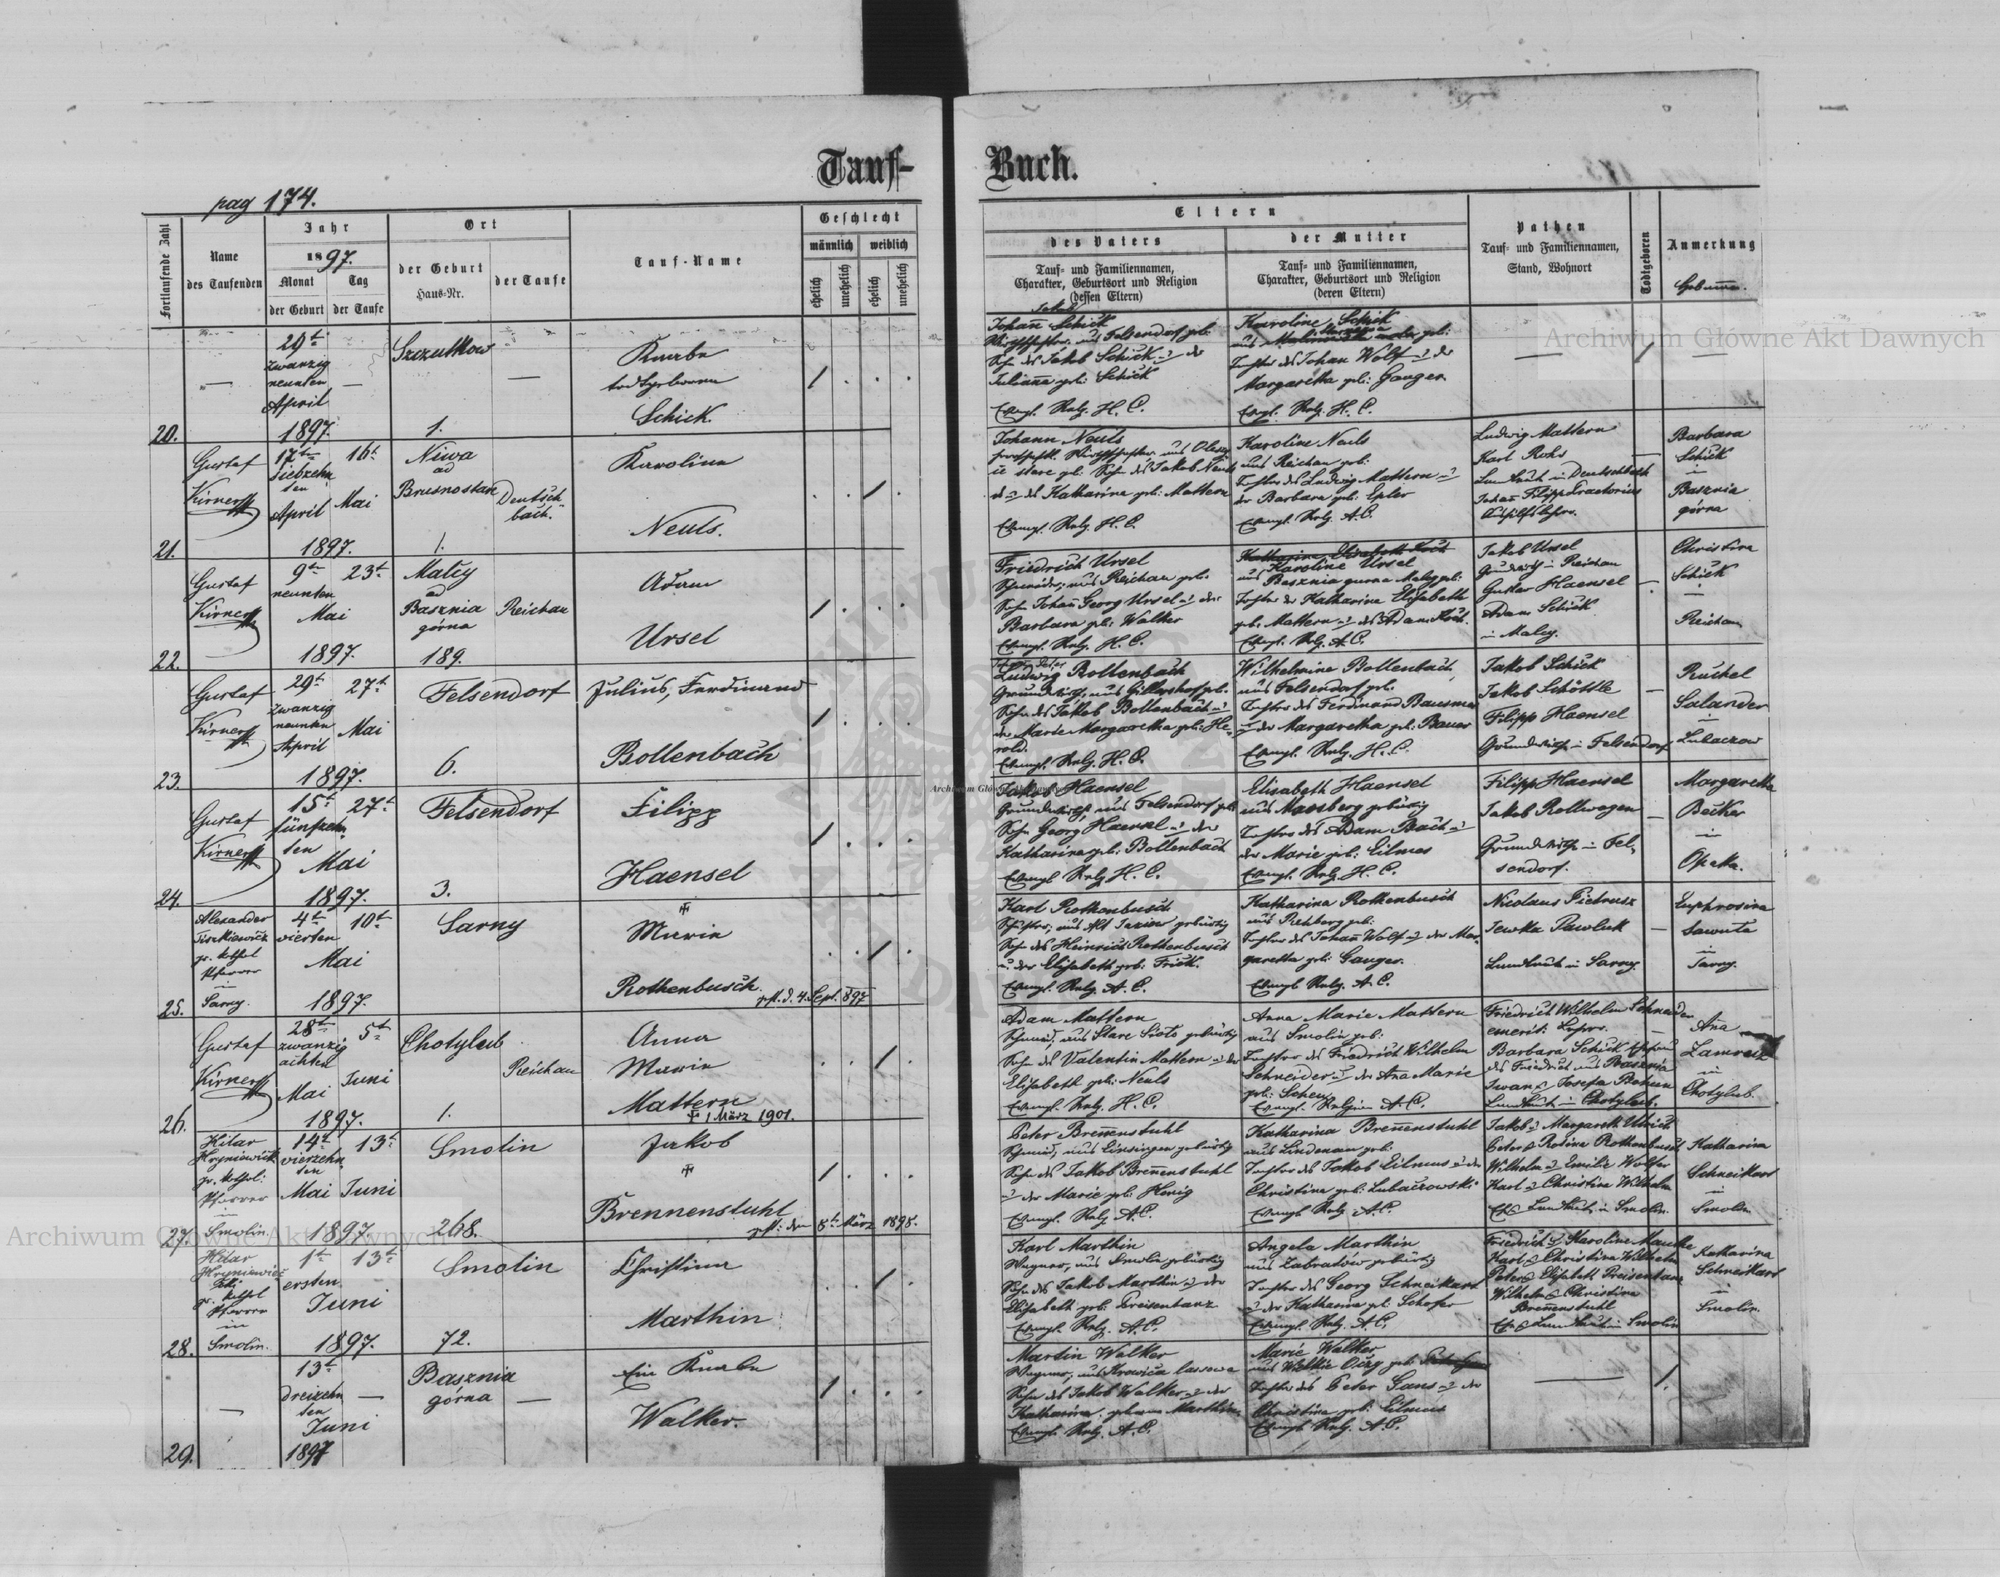 Tauf-
Buch.
pag 174.
Fortlaufende Zahl
Name
des Taufenden
Jahr
1897.
Monat
der Geburt
Tag
der Taufe
Ort
der Geburt
Haus-Nr.
der Taufe
Tauf-Name
Geschlecht
männlich
weiblich
ehelich
unehelich
ehelich
unehelich
Eltern
des Vaters
Tauf- und Familiennamen,
Charakter, Geburtsort und Religion
(dessen Eltern)
der Mutter
Tauf- und Familiennamen,
Charakter, Geburtsort und Religion
(deren Eltern)
Pathen
Tauf- und Familiennamen,
Stand, Wohnort
Todtgeboren
Anmerkung
20.
29t
zwanzig
neunten
April
1897.
Szczutkow
1.
Knabe
todtgeboren
Schick.
Jakob
Johann Schick
Sohn des Jakob Schick u. der
Julianna geb: Schick
Evangl. Relg. H. C.
Karoline Schick
Tochter des Johan Wolf u. der
Margaretha geb: Ganger.
Evgl. Relg. H. C.
21.
Gustaf
Kirner
17ten
siebzehn
ten
April
1897.
16t
Mai
Niwa
ad
Brusnostare
1.
Deutsch
bach.
Karolina
Neuls.
Johann Neuls
d u. des Katharina geb: Mattern
Evangl. Relg. H. C.
Karoline Neuls
aus Reichau geb:
Tochter des Ludwig Mattern u.
der Barbara geb: Epler
Evangl. Relg. A. C.
Ludwig Mattern
Karl Rohs
Landleute in Deutschbach
Johann Filipp Praetorius
Aushilfslehrer.
Barbara
Schick
in
Basznia
górna
22.
Gustaf
Kirner
9ten
neunten
Mai
1897.
23t
Maley
ad
Basznia
górna
189.
Reichau
Adam
Ursel
Friedrich Ursel
Schneider, aus Reichau geb.
Sohn Johann Georg Ursel u. der
Barbara geb: Walker
Evangl. Relg. H. C.
Katharina Elisabeth Koch
Karoline Ursel
aus Basznia gorna Maley geb:
Tochter der Katharina Elisabeth
geb. Mattern u. des Adam Koch.
Evangl. Relg. A. C.
Jakob Ursel
Grundwirth in Reichau
Gustav Haensel
Adam Schick
in Maley.
Christina
Schick
in
Reichau
23.
Gustaf
Kirner
29t
zwanzig
neunten
April
1897.
27t
Mai
Felsendorf
6.
Julius, Ferdinand
Bollenbach
Ludwig Bollenbach
Grundwirth, aus Gillershof geb.
Sohn des Jakob Bollenbach u.
der Marie Margaretha geb: He-
rold.
Evangl. Relg. H. C.
Wilhelmine Bollenbach
aus Felsendorf geb.
Tochter des Ferdinand Bausmer
u. der Margaretha geb: Bauer
Evangl. Relg. H. C.
Jakob Schick
Jakob Schöttle
Filipp Haensel
Grundwirthe in Felsendorf
Ruchel
Salander
in
Lubaczow
24.
Gustaf
Kirner
15t
fünfzehn
ten
Mai
1897.
27t
Felsendorf
3.
Filipp
Haensel
Jakob Haensel
Grundwirth, aus Felsendorf geb.
Sohn Georg Haensel u. der
Katharina geb: Bollenbach
Evangl. Relg. H. C.
Elisabeth Haensel
aus Mansberg gebürtig
Tochter des Adam Bach u.
der Marie geb: Eilmes
Evangl. Relg. H. C.
Filipp Haensel
Jakob Rollwagen
Grundwirthe in Fel-
sendorf.
Margaretha
Becker
in
Opaka.
25.
Alexander
gr. kathol
Pfarrer
in
Sarny.
4ten
vierten
Mai
1897.
10t
Sarny
Maria
Rothenbusch.
gst. d. 4. Sept. 897
Karl Rothenbusch
Schuster, aus Alt Jazow gebürtig
Sohn des Heinrich Rothenbusch
u. der Elisabeth geb: Frick.
Evangl. Relg. A. C.
Katharina Rothenbusch
aus Rehberg geb:
Tochter des Johann Wolf u. der Mar-
garetha geb: Ganger.
Evangl. Relg. A. C.
Nicolaus Pietrusz
Jewka Pawluk
Landleute in Sarny.
Euphrosina
Sawuta
in
Sarny.
26.
Gustaf
Kirner
28t
zwanzig
achten
Mai
1897.
5t
Juni
Chotylub
1.
Reichau
Anna
Maria
Mattern
1 März 1901.
Adam Mattern
Schmied, aus Stare Sioto gebürtig
Sohn des Valentin Mattern u. der
Elisabeth geb: Neuls
Evangl. Relg. H. C.
Anna Marie Mattern
aus Smolin geb:
Tochter des Friedrich Wilhelm
Schneider u. der Ana Marie
geb: Scheu
Evangl. Religion A. C.
Friedrich Wilhelm Schneider
emerit: Lehrer.
Barbara Schick Ehefrau
des Friedrich aus Basznia
Iwan & Josefa Bohun
Landleute in Chotylub.
Ana
in
Chotylub.
27.
Hilar
Hryniewicki
gr. kathol:
Pfarrer
in
Smolin.
14t
vierzehn
ten
Mai
1897.
13t
Juni
Smolin
268.
Jakob
Brennenstuhl
gst: den 8ten März 1898.
Peter Brennenstuhl
Schmied, aus Einsingen gebürtig
Sohn des Jakob Brennenstuhl
u. der Marie geb: Herig
Evangl. Relg. A. C.
Katharina Brennenstuhl
aus Lindenau geb:
Tochter des Jakob Eilmes u. der
Christina geb: Lubaczowski
Evangl. Relg A. C.
Jakob & Margareth Ulrich
Peter & Rosina Rothenbusch
Wilhelm & Emilie Wolfer
Karl & Christina Wilhelm
Landleute in Smolin.
Katharina
Schneikart
in
Smolin.
28.
Hilar
gr. kathol
Pfarrer
in
Smolin.
1t
ersten
Juni
1897.
13t
Smolin
72.
Christina
Marthin
Karl Marthin
Wagner, aus Smolin gebürtig
Sohn des Jakob Marthin u. der
Elisabeth geb. Preisentanz
Evangl. Relg. A. C.
Angela Marthin
aus Zabratów gebürtig
Tochter des Georg Schneikart
u. der Katharina geb. Schofer
Evangl. Relg. A. C.
Friedrich & Karoline Manthe
Karl & Christina Wilhelm
Peter & Elisabeth Preisentanz
Wilhelm & Christina
Brennenstuhl
Landleute in Smolin
Katharina
Schneikart
in
Smolin.
29.
13t
dreizehn
ten
Juni
1897
Basznia
górna
Ein Knabe
Walker.
Martin Walker
Wagner, aus Krowica lasowa
Sohn des Jakob Walker u. der
Katharina, geborene Marthin.
Evangl. Relg. A. C.
Marie Walker,
Tochter des Peter Gans u. der
Christina geb: Eilmes
Evangl. Relg. A. C.
Archiwum Główne Akt Dawnych
Archiwum Główne Akt Dawnych
Archiwum Główne Akt Dawnych